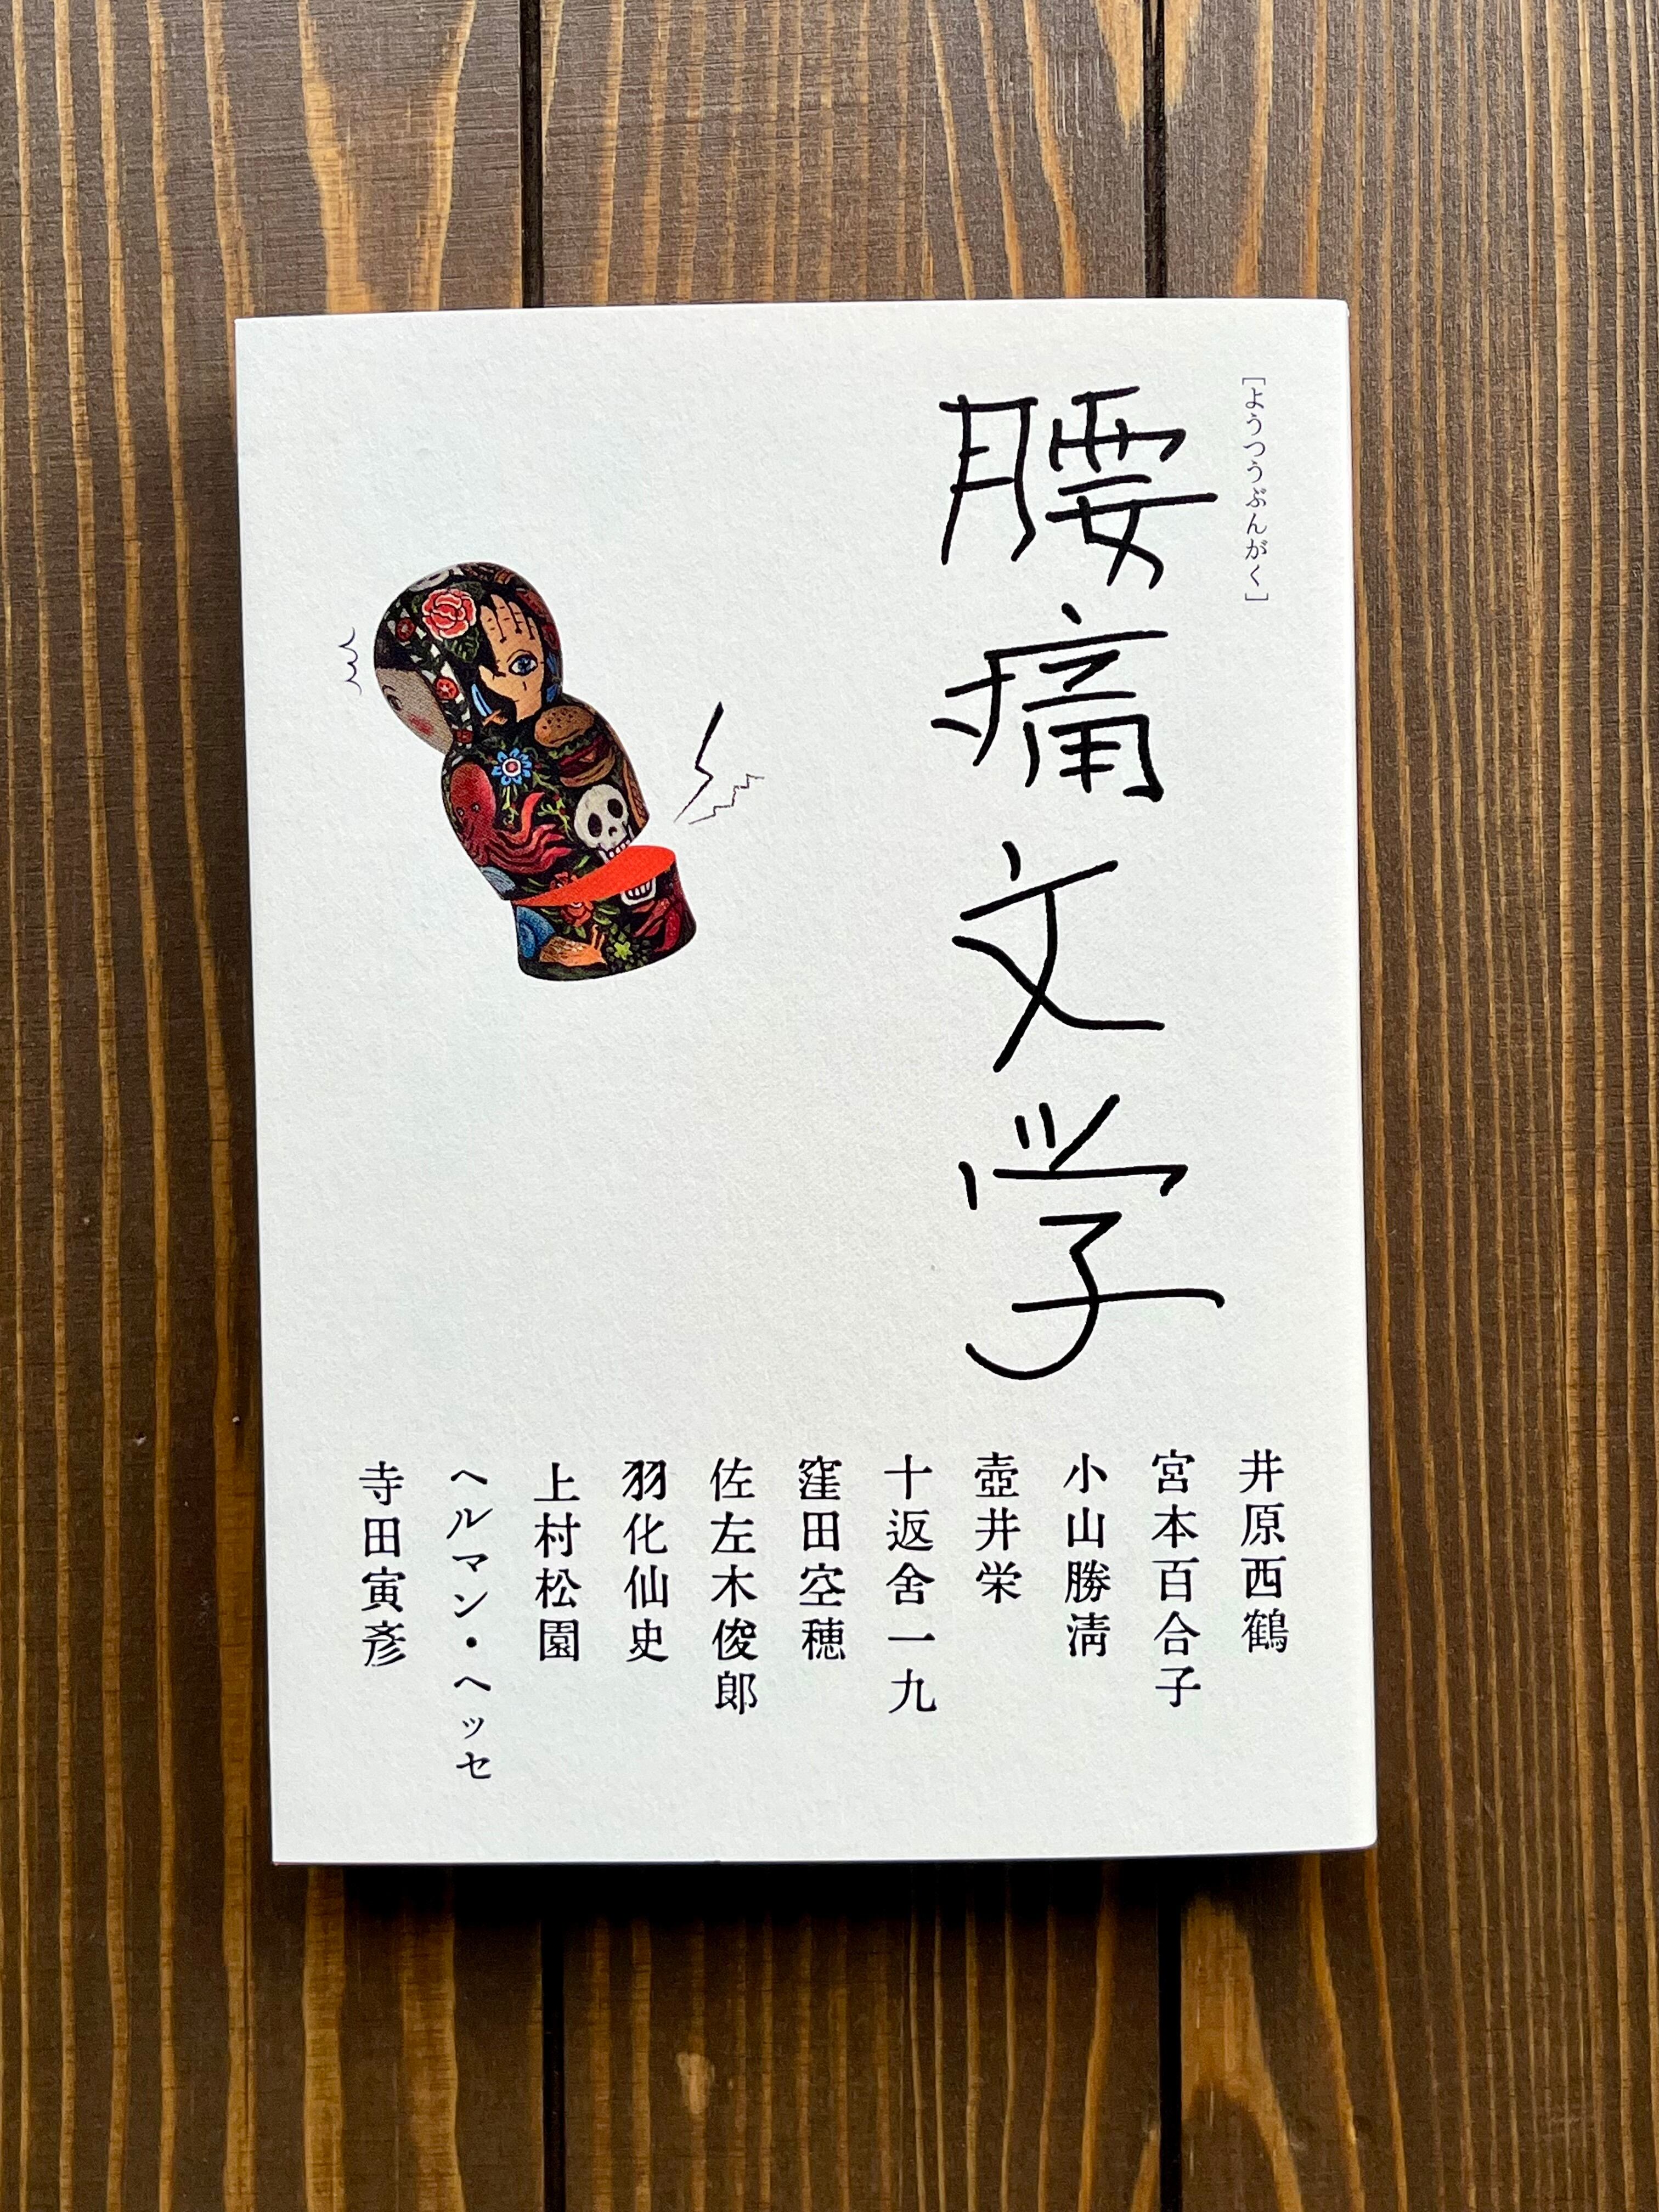 [ようつうぶんがく]
腰痛文学
井原西鶴
宮本百合子
小山勝清
壺井栄
十返舎一九
窪田空穂
佐左木俊郎
羽化仙史
上村松園
ヘルマン・ヘッセ
寺田寅彦